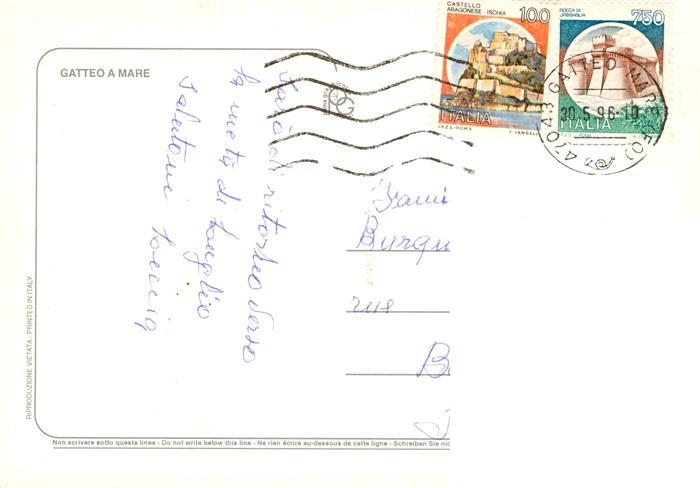 GATTEO A MARE
CASTELLO
ARAGONESE - ISCHIA
100
ITALIA
I.P.Z.S. - ROMA
ROCCA DI
URBISAGLIA
750
ITALIA
47043 GATTEO MARE (FO)
30.5.96-10
Sarò di ritorno verso
la metà di luglio
Saluti
Fami
Burqu
rue
B
RIPRODUZIONE VIETATA - PRINTED IN ITALY
Non scrivere sotto questa linea - Do not write below this line - Ne rien écrire au-dessous de cette ligne - Schreiben Sie nic